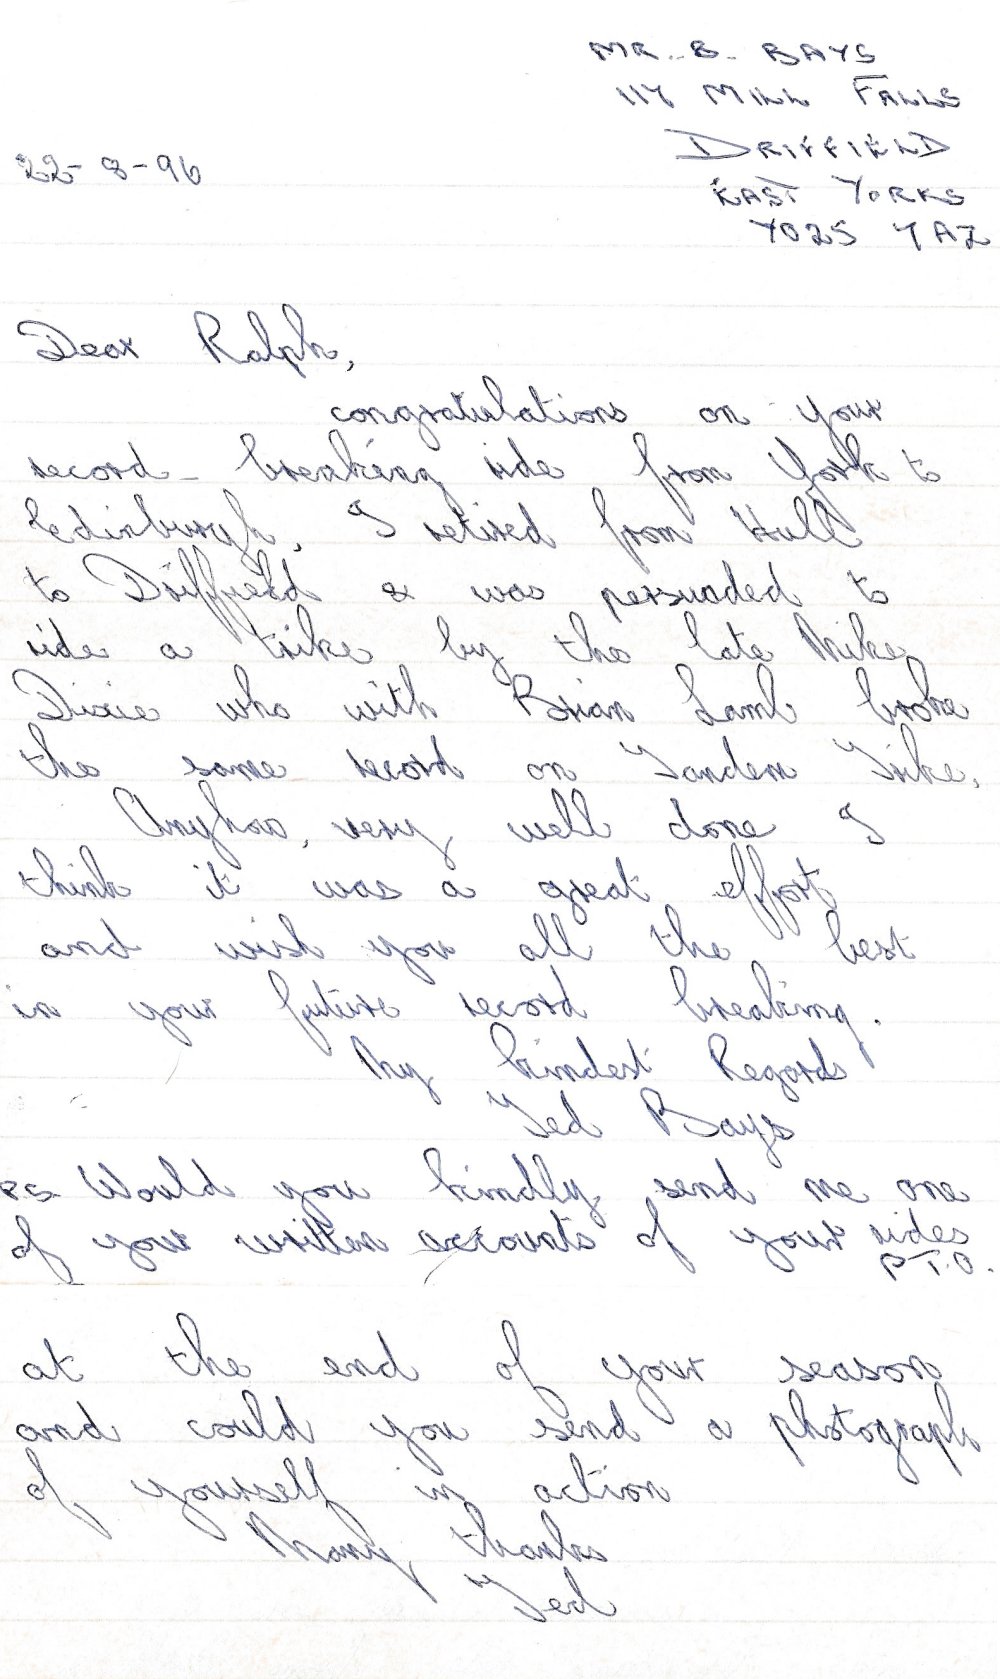 MR. B. BAYS
117 MILL FALLS
DRIFFIELD
EAST YORKS
YO25 7AZ
22-8-96
Dear Ralph,
congratulations on your
record-breaking ride from York to
Edinburgh, I retired from Hull
to Driffield & was persuaded to
ride a trike by the late Mike
Dixie who with Brian Lamb broke
the same record on Tandem Trike.
Anyhow, very well done I
think it was a great effort
and wish you all the best
in your future record breaking.
My kindest Regards
Ted Bays
PS Would you kindly send me one
of your written accounts of your rides
P.T.O.
at the end of your season
and could you send a photograph
of yourself in action
Many thanks
Ted